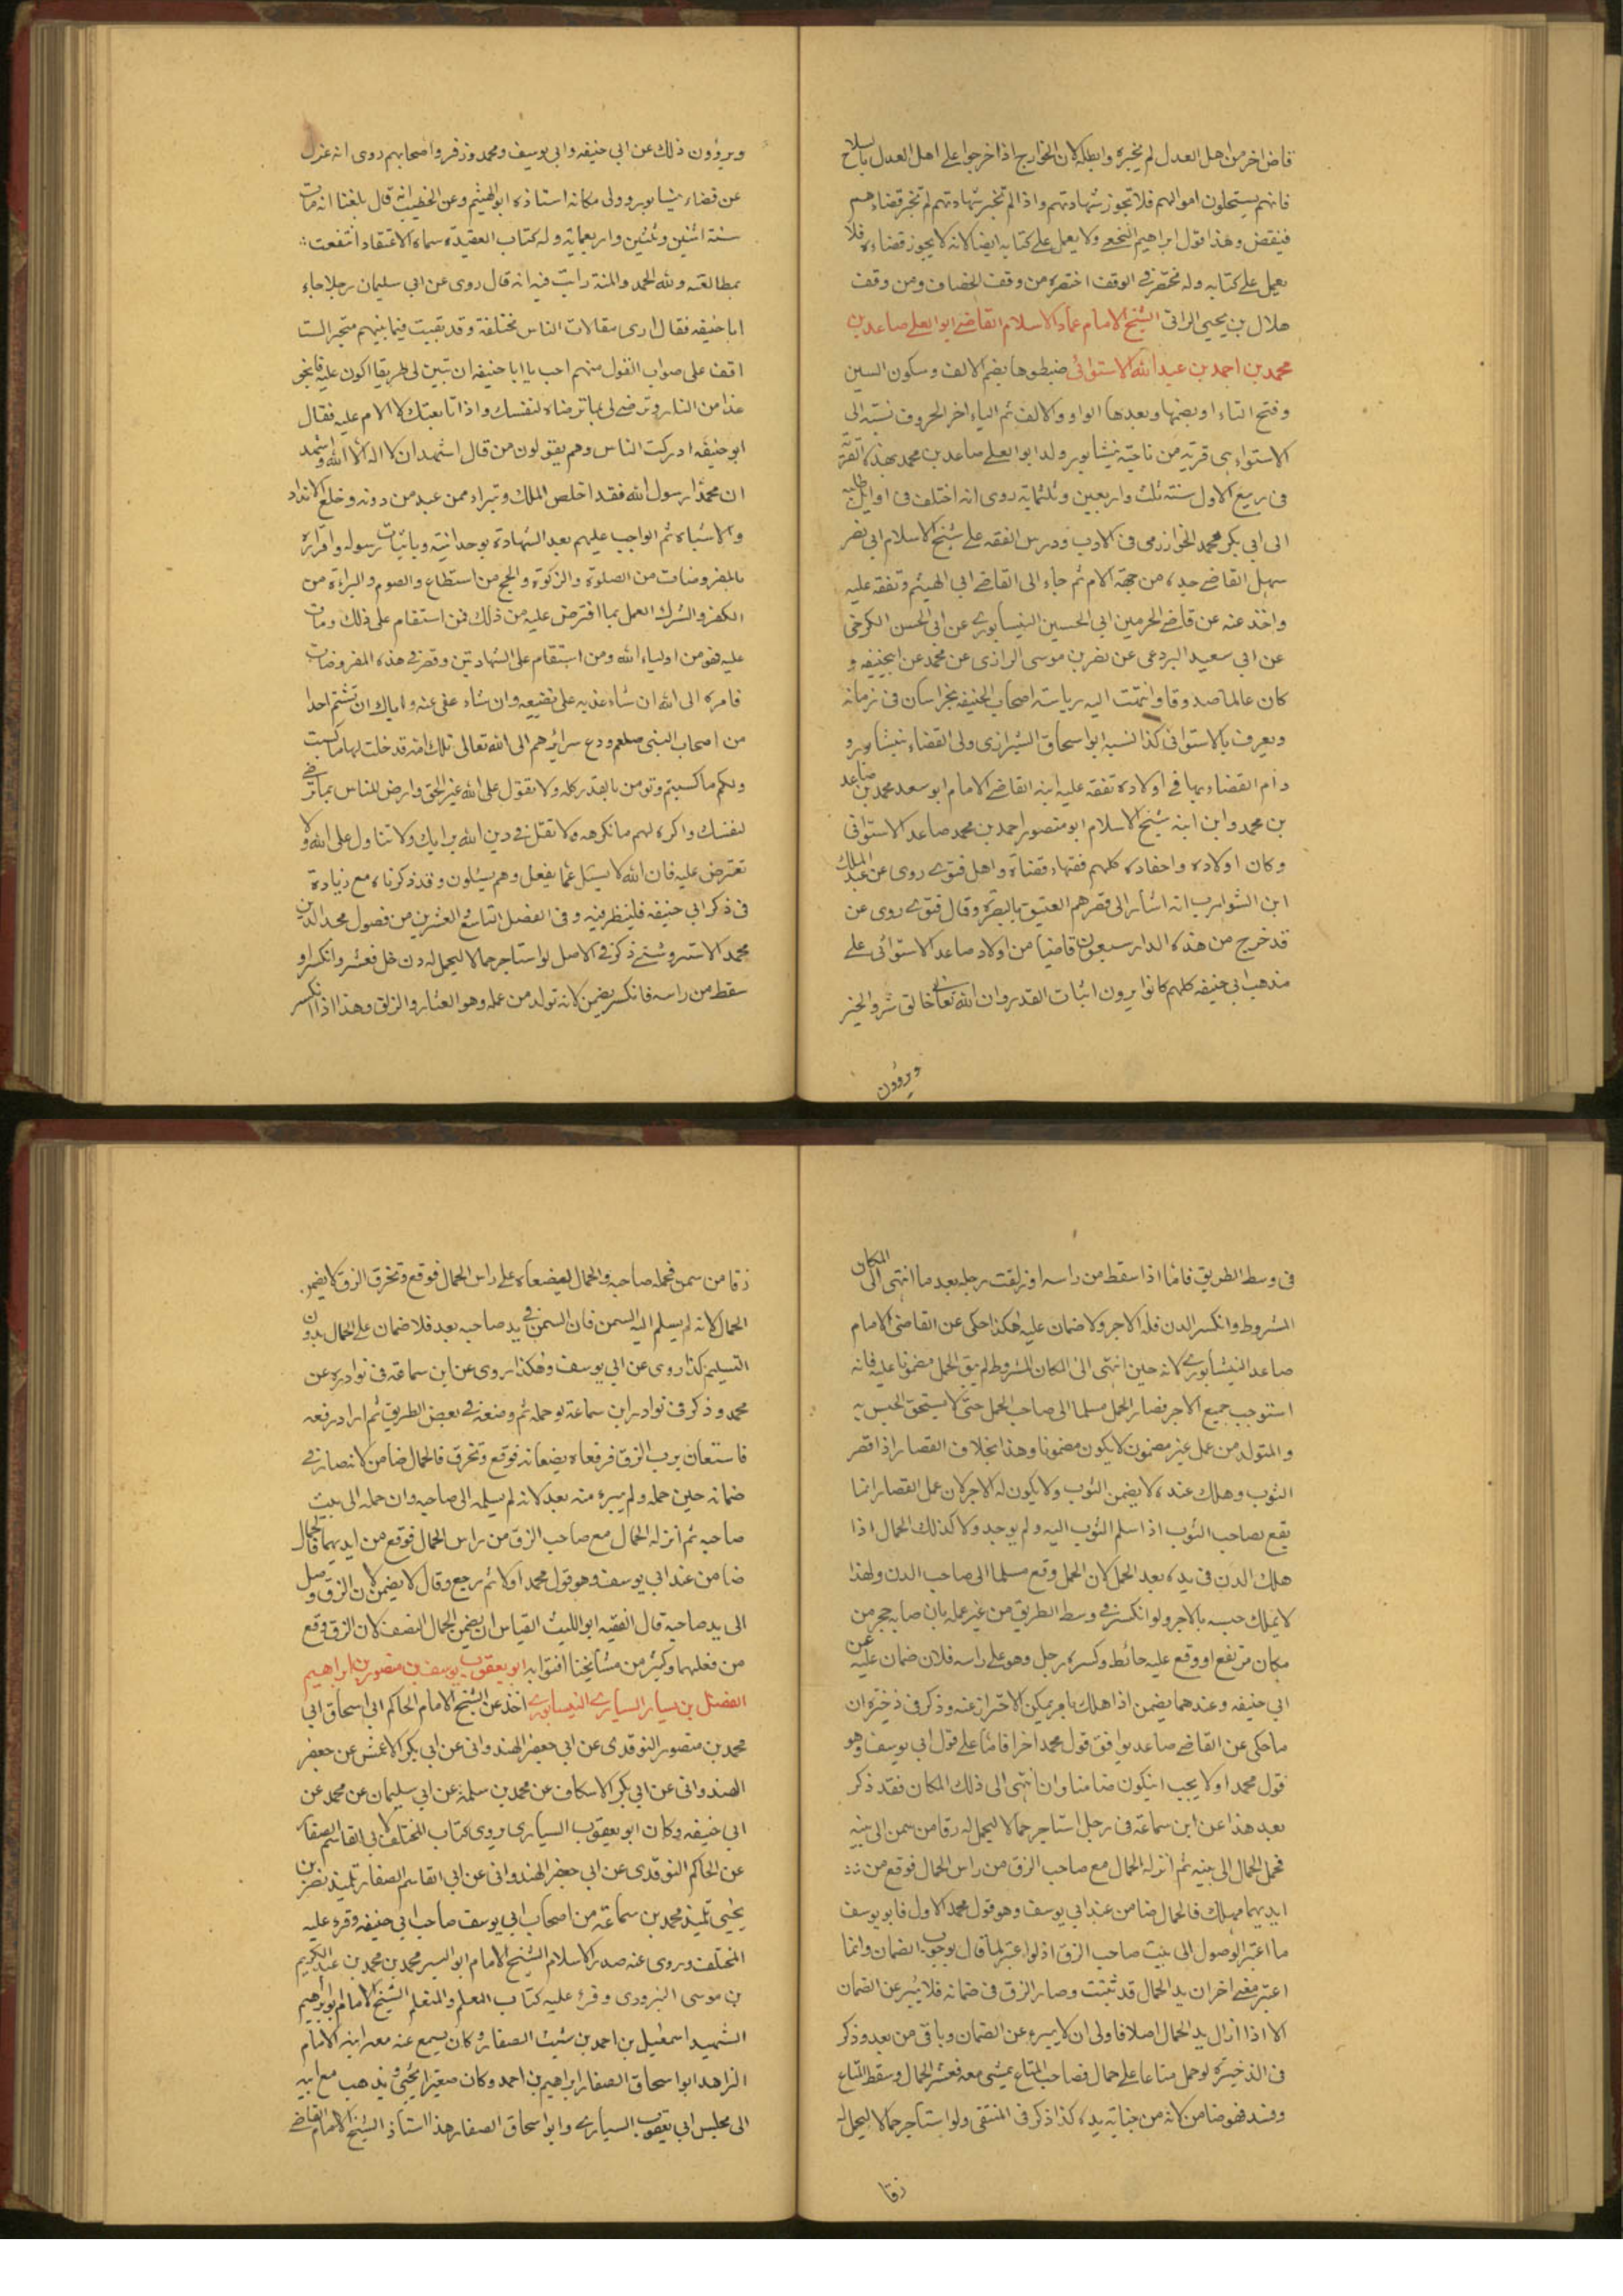 قاض اخر من اهل العدل لم يجزه وابطله لان الخوارج اذا خرجوا على اهل العدل بالسلاح
فانهم يستحلون اموالهم فلا تجوز شهادتهم واذا لم تجز شهادتهم لم تجز قضاءهم
فينقض وهذا قول ابراهيم النخعى ولا يعمل على كتابه ايضا لانه لا يجوز قضاءه فلا
يعمل على كتابه وله مختصر فى الوقف اختصره من وقف الخصاف ومن وقف
هلال بن يحيى الراى الشيخ الامام عماد الاسلام القاضى ابو العلى صاعد بن
محمد بن احمد بن عبد الله الاستوائى ضبطوها بضم الالف وسكون السين
وفتح التاء او بضمها وبعدها الواو والالف ثم الياء اخر الحروف نسبة الى
الاستواء هى قرية من ناحية نيشابور ولد ابو العلى صاعد بن محمد بهذه القرية
فى ربيع الاول سنة ثلث واربعين وثلثماية روى انه اختلف فى اوايل طلبه
الى ابى بكر محمد الخوارزمى فى الادب ودرس الفقه على شيخ الاسلام ابى نصر
سهل القاضى جده من جهة الام ثم جاء الى القاضى ابى الهيثم وتفقه عليه
واخذ عنه عن قاضى الحرمين ابى الحسين النيسابورى عن ابى الحسن الكرخى
عن ابى سعيد البردعى عن نصر بن موسى الرازى عن محمد عن ابيحنيفه و
كان عالما صدوقا وانتهت اليه رياسة اصحاب ابى حنيفه بخراسان فى زمانه
ويعرف بالاستوائى كذا نسبه ابو اسحاق الشيرازى ولى القضاء بنيشابور و
دام القضاء بها فى اولاده تفقه عليه ابنه القاضى الامام ابو سعد محمد بن صاعد
بن محمد وابن ابنه شيخ الاسلام ابو منصور احمد بن محمد صاعد الاستوائى
وكان اولاده واحفاده كلهم فقهاء قضاة واهل فتوى روى عن عبد الملك
ابن الشوارب انه اشار الى قصرهم العتيق بالبصرة وقال فتوى روى عن
قد خرج من هذه الدار سبعون قاضيا من اولاد صاعد الاستوائى على
مذهب ابى حنيفه كلهم كانوا يرون اثبات القدر وان الله تعالى خالق شر والخير
ويروون
ويروون ذلك عن ابى حنيفه وابى يوسف ومحمد وزفر واصحابهم روى انه عزل
عن قضاء نيشابور وولى مكانه استاذه ابو الهيثم وعن الخطيب انه قال بلغنا انه مات
سنة اثنين وثلثين واربعماية وله كتاب العقيدة سماه الاعتقاد انتفعت
بمطالعته ولله الحمد والمنة رايت فيه انه قال روى عن ابى سليمان رجلا جاء
ابا حنيفه فقال ارى مقالات الناس مختلفة وقد بقيت فيما بينهم متحيرا لست
اقف على صواب القول منهم احب يا ابا حنيفه ان تبين لى طريقا اكون عليه فانجو
غدا من النار وترضى لى بما ترضاه لنفسك واذا تابعتك لا الام عليه فقال
ابو حنيفه ادركت الناس وهم يقولون من قال اشهد ان لا اله الا الله واشهد
ان محمدا رسول الله فقد اخلص الملك وتبراء ممن عبد من دونه وخلع الانداد
والاشباه ثم الواجب عليهم بعد الشهادة بوحدانيته وباثبات رسوله واقراره
بالمفروضات من الصلوة والزكوة والحج من استطاع والصوم والبراءة من
الكفر والشرك العمل بما افترض عليه من ذلك فمن استقام على ذلك ومات
عليه فهو من اولياء الله ومن استقام على الشهادتين وقصر فى هذه المفروضات
فامره الى الله ان شاء عذبه على تضييعه وان شاء عفى عنه واياك ان تشتم احدا
من اصحاب النبى صلعم ودع سرائرهم الى الله تعالى تلك امة قد خلت لها ما كسبت
ولكم ما كسبتم وتومن بالقدر كله ولا تقول على الله غير الحق وارض للناس بما ترضى
لنفسك واكره لهم ما تكرهه ولا تقل فى دين الله برايك ولا تتاول على الله ولا
تعترض عليه فان الله لا يسئل عما يفعل وهم يسئلون وقد ذكرناه مع زيادة
فى ذكر ابى حنيفه فلينظر فيه وفى الفصل التاسع والعشرين من فصول مجد الدين
محمد الاستروشنى ذكر فى الاصل لو استاجر حمالا ليحمل له دن خل فعثر وانكسر او
سقط من راسه فانكسر يضمن لانه تولد من عمله وهو العثار والزلق وهذا اذا انكسر
فى وسط الطريق فاما اذا سقط من راسه او زلقت رجله بعد ما انتهى الى المكان
المشروط وانكسر الدن فله الاجر ولا ضمان عليه هكذا حكى عن القاضى الامام
صاعد النيشابورى لانه حين انتهى الى المكان المشروط لم يبق الحمل مضمونا عليه فانه
استوجب جميع الاجر فصار الحمل مسلما الى صاحب الحمل حتى لا يستحق الحبس به
والمتولد من عمل غير مضمون لا يكون مضمونا وهذا بخلاف القصار اذا قصر
الثوب وهلك عنده لا يضمن الثوب ولا يكون له الاجر لان عمل القصار انما
يقع لصاحب الثوب اذا سلم الثوب اليه ولم يوجد ولا كذلك الحمال اذا
هلك الدن فى يده بعد الحمل لان الحمل وقع مسلما الى صاحب الدن ولهذا
لا يملك حبسه بالاجر ولو انكسر فى وسط الطريق من غير عمله بان اصابه حجر من
مكان مرتفع او وقع عليه حائط وكسره رجل وهو على راسه فلان ضمان عليه عن
ابى حنيفه وعندهما يضمن اذا هلك بامر يمكن الاحتراز عنه وذكر فى ذخيره ان
ما حكى عن القاضى صاعد يوافق قول محمد اخرا فاما على قول ابى يوسف وهو
قول محمد اولا يجب ان يكون ضامنا وان انتهى الى ذلك المكان فقد ذكر
بعد هذا عن ابن سماعة فى رجل استاجر حمالا ليحمل له زقا من سمن الى بيته
فحمل الحمال الى بيته ثم انزله الحمال مع صاحب الزق من راس الحمال فوقع من
ايديهما فهلك فالحمال ضامن عند ابى يوسف وهو قول محمد الاول فابو يوسف
ما اعتبر الوصول الى بيت صاحب الزق اذ لو اعتبر لما قال بوجوب الضمان وانما
اعتبر معنى اخر ان يد الحمال قد ثبتت وصار الزق فى ضمانه فلا يبرء عن الضمان
الا اذا زال يد الحمال اصلا فاولى ان لا يبرء عن الضمان وباقى من بعد وذكر
فى الذخيرة لو حمل متاعا على حمال فصاحب المتاع يمشى معه فعثر الحمال وسقط المتاع
وفسد فهو ضامن لانه من جناية يده كذا ذكر فى المنتقى ولو استاجر حمالا ليحمل له
زقا
زقا من سمن فحمله صاحبه والحمال ليضعاه على راس الحمال فوقع وتخرق الزق لا يضمن
الحمال لانه لم يسلم اليه السمن فان السمن فى يد صاحبه بعد فلا ضمان على الحمال بدون
التسليم كذا روى عن ابى يوسف وهكذا روى عن ابن سماعة فى نوادره عن
محمد وذكر فى نوادر ابن سماعة لو حمله ثم وضعه فى بعض الطريق ثم اراد رفعه
فاستعان برب الزق فرفعاه يضعانه فوقع وتخرق فالحمال ضامن لانه صار فى
ضمانه حين حمله ولم يبرء منه بعد لانه لم يسلمه الى صاحبه وان حمله الى بيت
صاحبه ثم انزله الحمال مع صاحب الزق من راس الحمال فوقع من ايديهما فالحمال
ضامن عند ابى يوسف وهو قول محمد اولا ثم رجع وقال لا يضمن لان الزق وصل
الى يد صاحبه قال الفقيه ابو الليث القياس ان يضمن الحمال النصف لان الزق وقع
من فعلهما وكثير من مشايخنا افتوا به ابو يعقوب يوسف بن منصور بن ابراهيم
الفضل بن سيار السيارى النيسابورى اخذ عن الشيخ الامام الحاكم ابى اسحاق ابى
محمد بن منصور النوقدى عن ابى جعفر الهندوانى عن ابى بكر الاعمش عن جعفر
الهندوانى عن ابى بكر الاسكاف عن محمد بن سلمة عن ابى سليمان عن محمد عن
ابى حنيفه وكان ابو يعقوب السيارى يروى كتاب المختلف لابى القاسم الصفار
عن الحاكم النوقدى عن ابى جعفر الهندوانى عن ابى القاسم الصفار تلميذ نصر بن
يحيى تلميذ محمد بن سماعة من اصحاب ابى يوسف صاحب ابى حنيفه وقرء عليه
المختلف وروى عنه صدر الاسلام الشيخ الامام ابو اليسر محمد بن محمد بن عبد الكريم
بن موسى البزودى وقرئ عليه كتاب المعلم والمتعلم الشيخ الامام ابو ابرهيم
الشهيد اسمعيل بن احمد بن شيث الصفار وكان يسمع عنه معه ابنه الامام
الزاهد ابو اسحاق الصفار ابراهيم بن احمد وكان صغيرا يجئ ويذهب مع ابيه
الى مجلس ابى يعقوب السيارى وابو اسحاق الصفار هذا استاذ الشيخ الامام القاضى